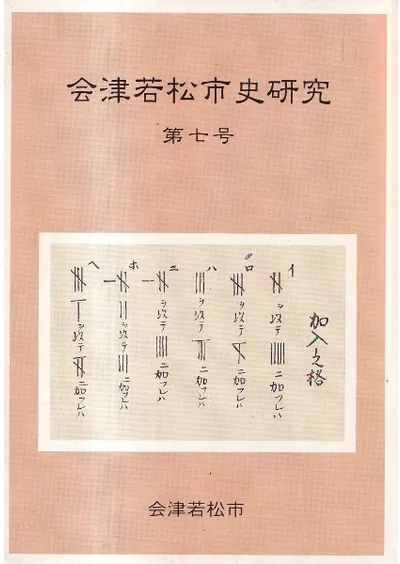 会津若松市史研究
第七号
加入之格
イ
ヲ以テ
ニ加フレハ
ロ
ヲ以テ
ニ加フレハ
ハ
ヲ以テ
ニ加フレハ
ニ
ヲ以テ
ニ加フレハ
ホ
ヲ以テ
ニ加フレハ
ヘ
ヲ以テ
ニ加フレハ
会津若松市